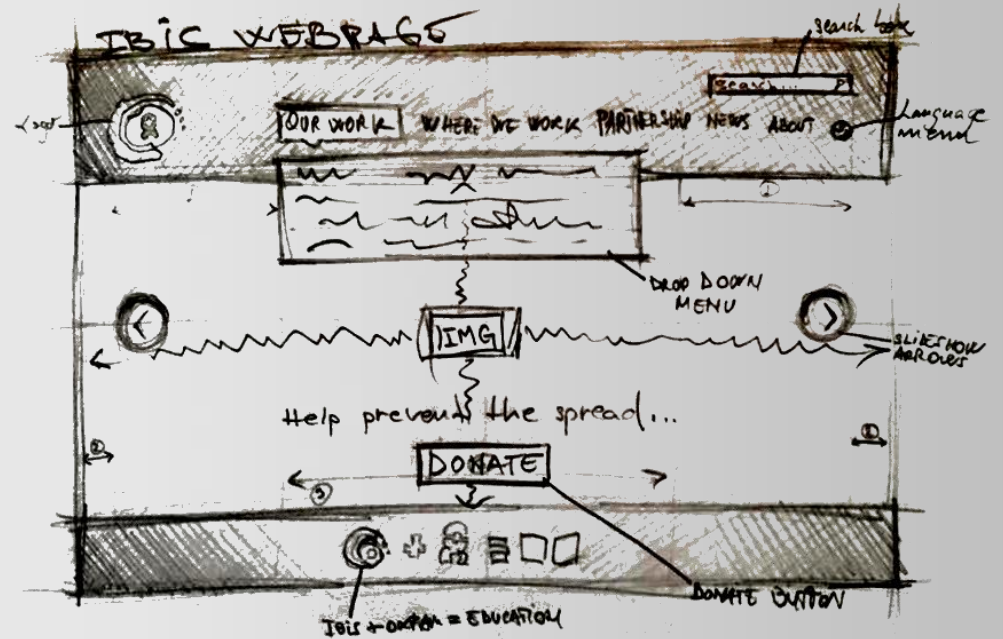 IBIC WEBPAGE
search box
search...
Logo
OUR WORK WHERE WE WORK PARTNERSHIP NEWS ABOUT
Language menu
1
DROP DOWN MENU
< >
IMG
SLIDESHOW ARROWS
Help prevent the spread...
2 2
DONATE
3
DONATE BUTTON
IBIS + OXFAM = EDUCATION